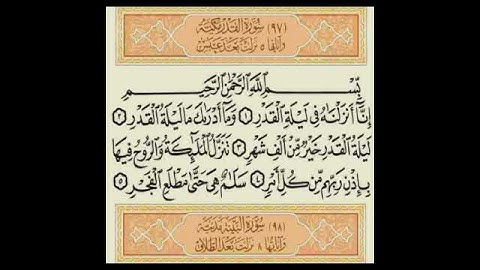 (٩٧) سُورَةُ الْقَدْرِ مَكِّيَّة
وَآيَاتُهَا ٥ نَزَلَتْ بَعْدَ عَبَسَ
بِسْمِ ٱللَّهِ ٱلرَّحْمَٰنِ ٱلرَّحِيمِ
إِنَّآ أَنزَلْنَٰهُ فِى لَيْلَةِ ٱلْقَدْرِ ١ وَمَآ أَدْرَىٰكَ مَا لَيْلَةُ ٱلْقَدْرِ ٢
لَيْلَةُ ٱلْقَدْرِ خَيْرٌ مِّنْ أَلْفِ شَهْرٍ ٣ تَنَزَّلُ ٱلْمَلَٰٓئِكَةُ وَٱلرُّوحُ فِيهَا
بِإِذْنِ رَبِّهِم مِّن كُلِّ أَمْرٍ ٤ سَلَٰمٌ هِىَ حَتَّىٰ مَطْلَعِ ٱلْفَجْرِ ٥
(٩٨) سُورَةُ الْبَيِّنَةِ مَدَنِيَّة
وَآيَاتُهَا ٨ نَزَلَتْ بَعْدَ الطَّلَاقِ